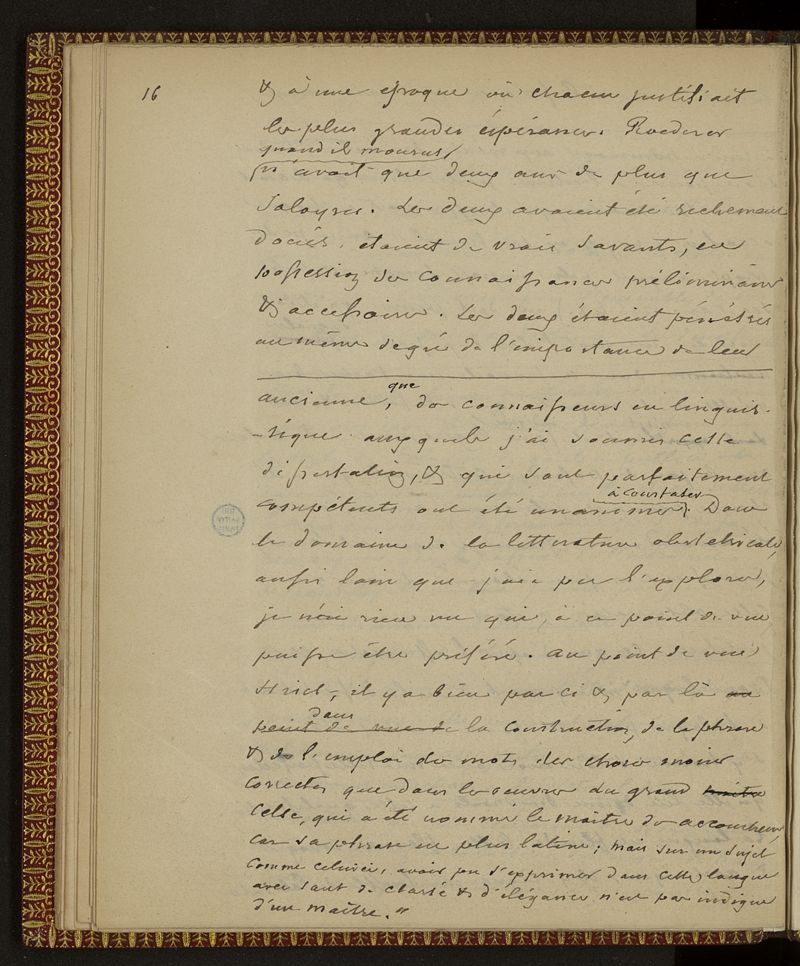 16
& à une époque où chacun justifiait
les plus grandes espérances. Roederer
quand il mourut
n'avait que deux ans de plus que
Salayres. Les deux avaient été richement
dotés, étaient de vrais savants, en
possession des connaissances préliminaires
& accessoires. Les deux étaient pénétrés
au même degré de l'importance de leur
ancienne, que des connaisseurs en linguis-
-tique auxquels j'ai soumis cette
dissertation, & qui sont parfaitement
à constater
compétents ont été unanimes. Dans
le domaine de la littérature obstétricale,
aussi loin que j'aie pu l'explorer,
je n'ai rien vu qui, à ce point de vue
puisse être préféré. Au point de vue
strict, il y a bien par ci & par là au
dans
point de vue de la construction, de la phrase
& de l'emploi des mots des choses moins
correctes que dans les œuvres du grand maître
Celse, qui a été nommé le maître des accoucheurs,
car sa phrase est plus latine; mais sur un sujet
comme celui-ci, avoir pu s'exprimer dans cette langue
avec tant de clarté & d'élégance n'est pas indigne
d'un maître."